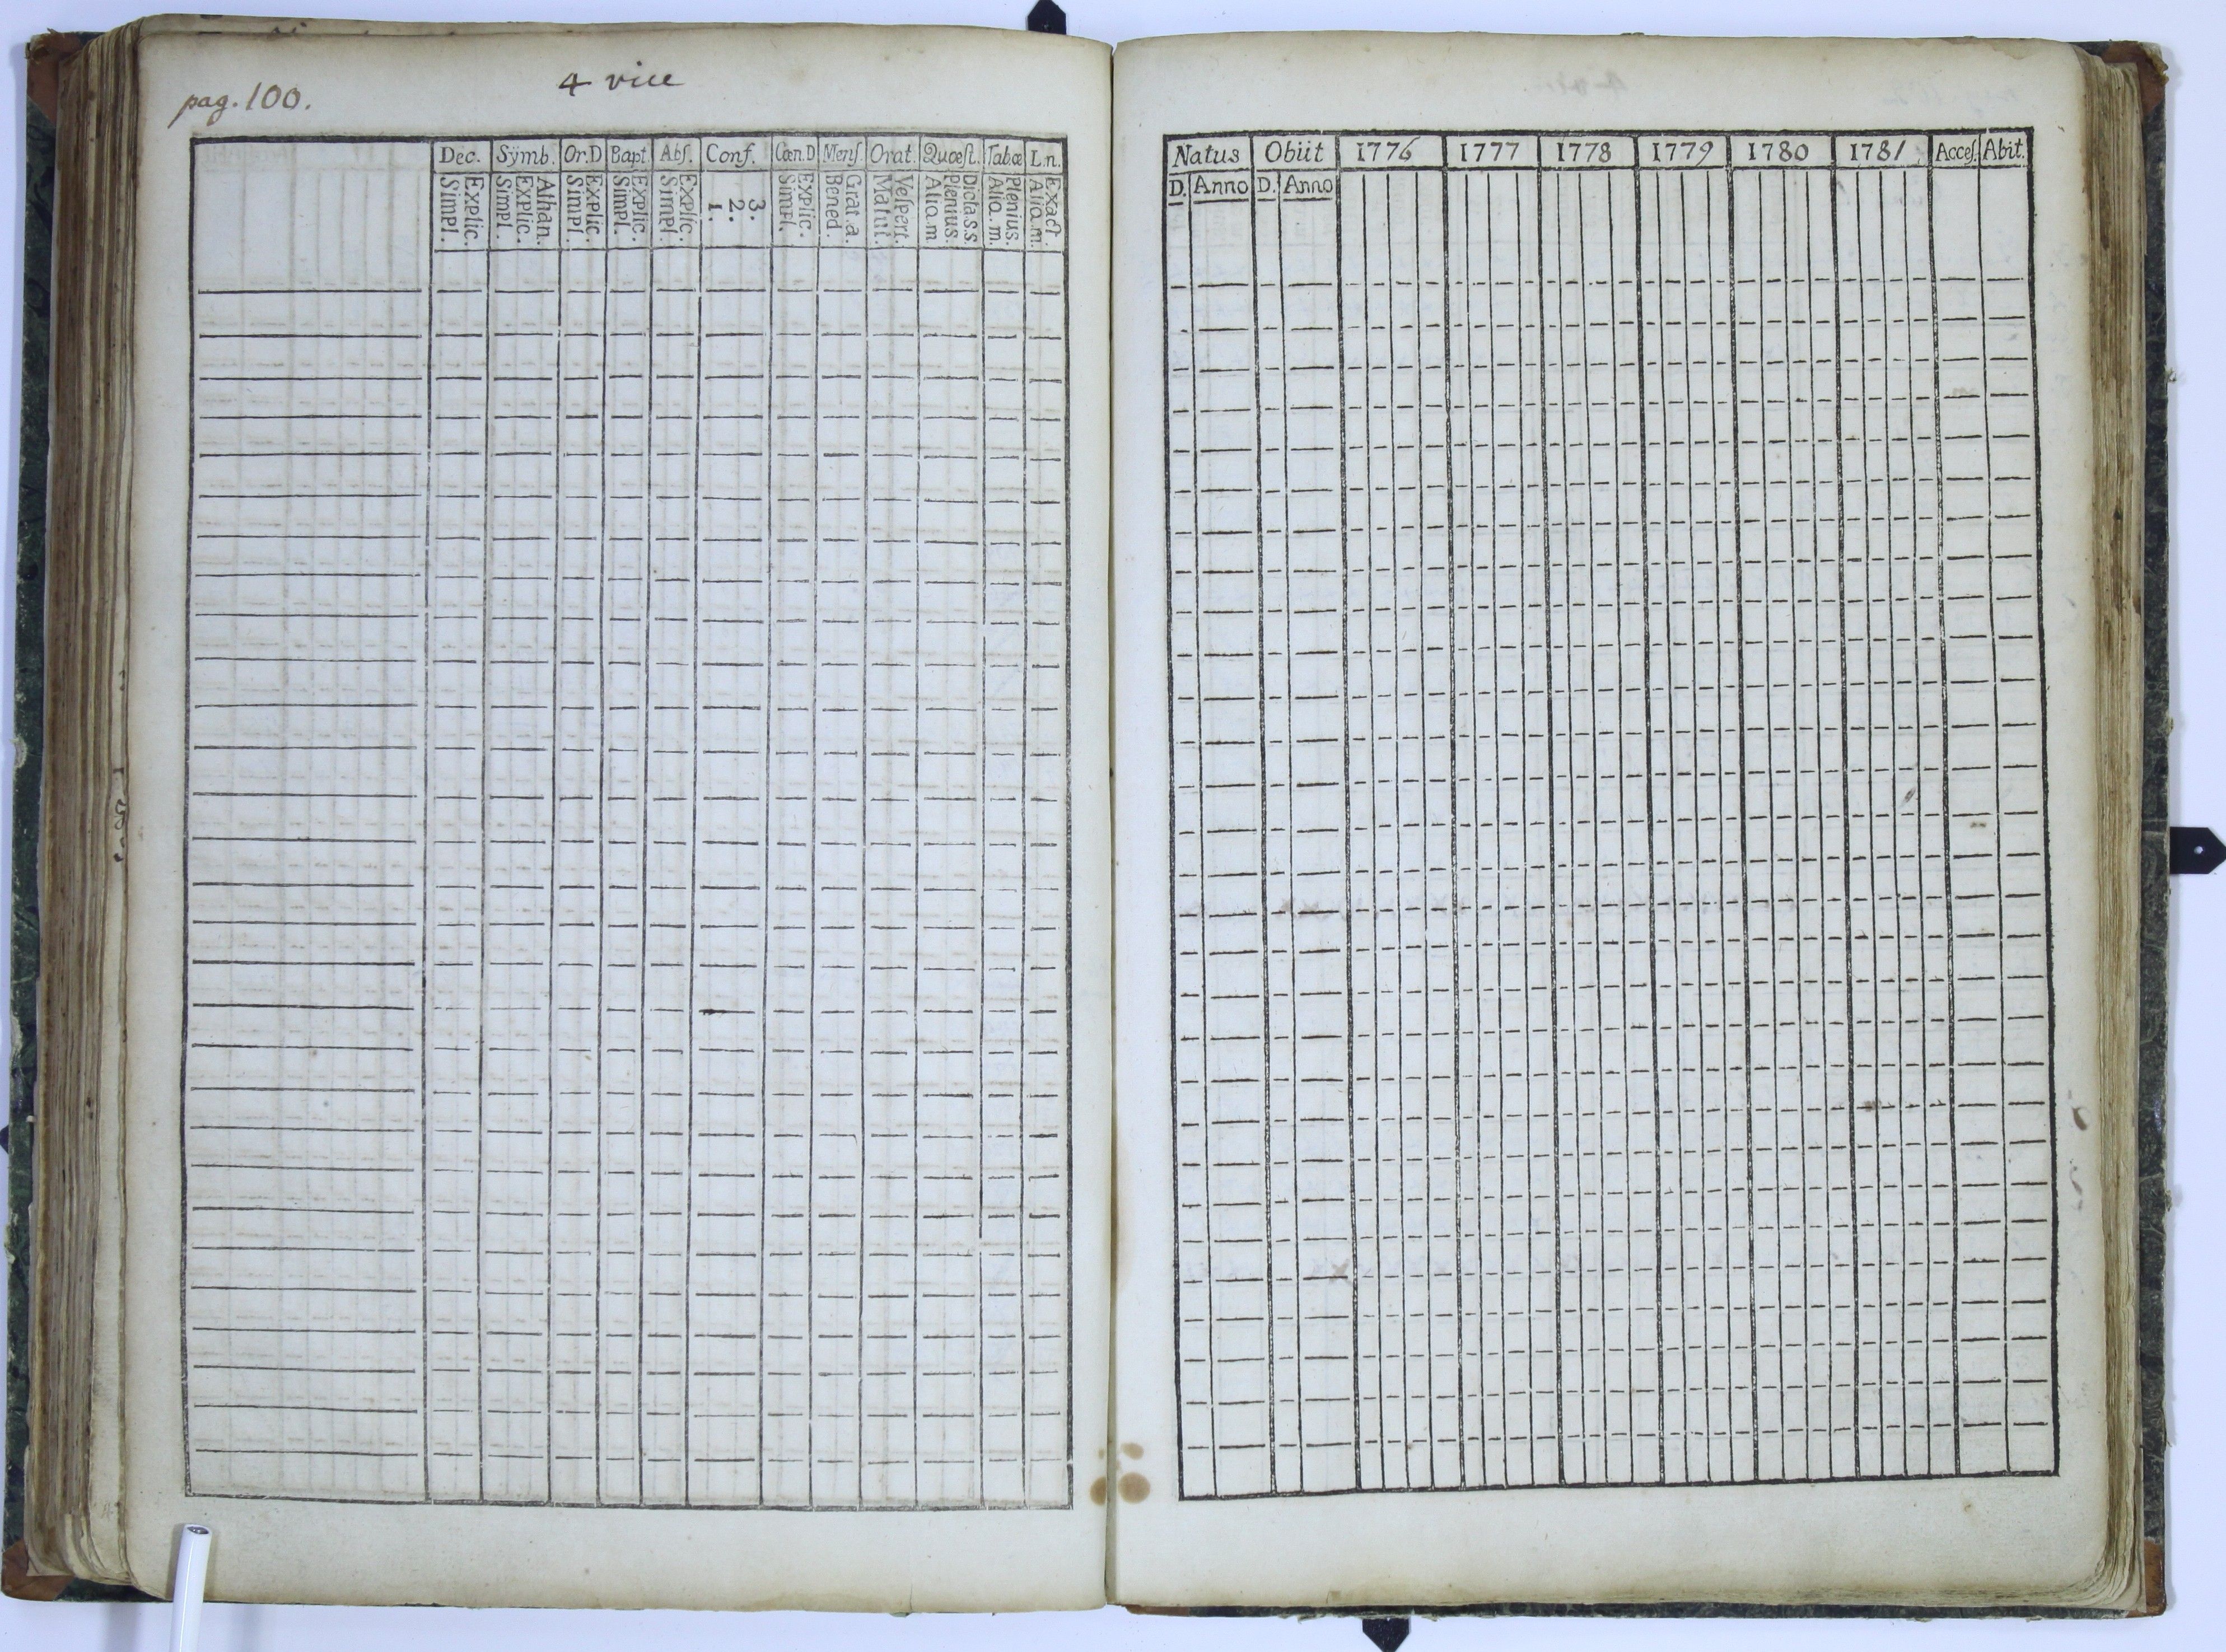 pag. 100.
4 vice
Dec. Sÿmb. Or.D Bapt. Abſ. Conf. Cœn.D Menſ. Orat. Quœſt. Tab.œ L.n.
Explic. Simpl.
Athan. Explic. Simpl.
Explic. Simpl.
Explic. Simpl.
Explic. Simpl.
3. 2. 1.
Explic. Simpl.
Grat.a. Bened.
Veſpert. Matut.
Dicta.s.s Plenius. Alio.m
Plenius. Alio.m.
Exact. Alio.m.
Natus Obiit 1776 1777 1778 1779 1780 1781 Acceſ. Abit.
D. Anno D. Anno